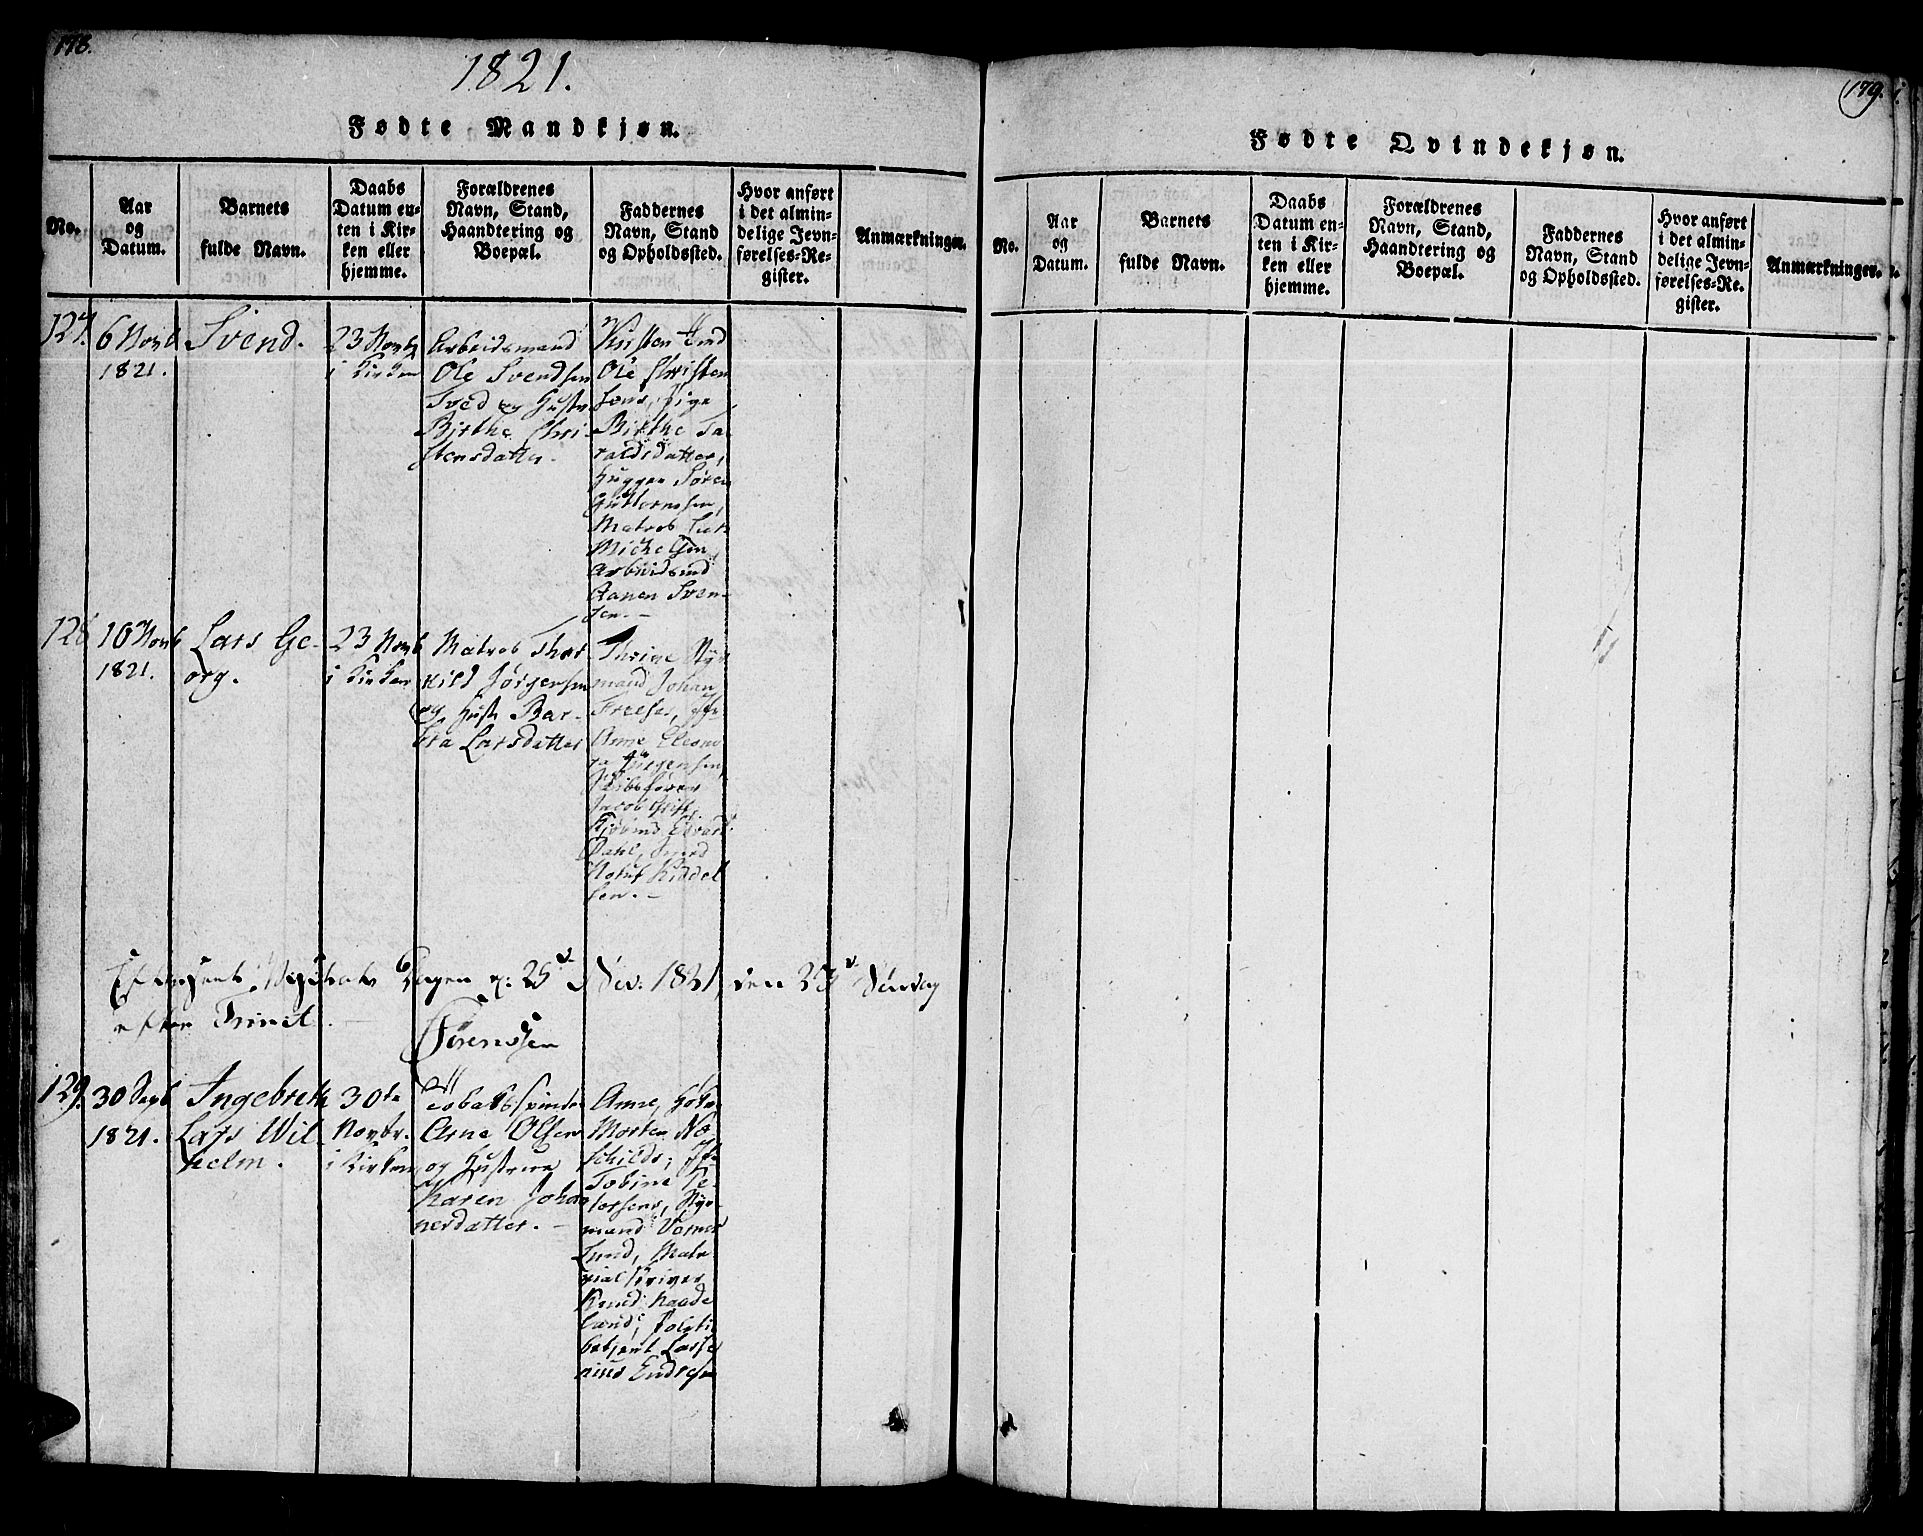 178.
1821.
Fødte Mandkjøn.
No.
Aar
og
Datum.
Barnets
fulde Navn.
Daabs
Datum en-
ten i Kir-
ken eller
hjemme.
Forældrenes
Navn, Stand,
Haandtering og
Boepæl.
Faddernes
Navn, Stand
og Opholdssted.
Hvor anført
i det almin-
delige Jevn-
førelses-Re-
gister.
Anmærkninger.
127.
6 Novb
1821.
Svend.
23 Novb
i Kirken
Arbeidsmand
Ole Svendsen
Tved og Hustr
Birthe Chri-
stensdatter.
Ole Christen
sens, Pige
Birthe Ta-
raldsdatter,
Hugger Søren
Guttormsen,
Matros
Michelsen,
Arbeidsmd
Aanen Sven-
sen. –
128
10 Novb
1821.
Lars Ge-
org.
23 Novb
i Kirken
Matros Thor
kild Jørgensen
og Hustr Bar-
bra Larsdatter
Styr
mand Johan
Anne Eleono
ra Jørgensen,
Skibsfører
Jacob
Dahl,
sen. –
25 Nov: 1821, den 23 Søndag
efter Trinit. –
Sørenssen
129.
30 Sept
1821.
Ingebreth
Lars Wil-
helm.
30te
Novbr.
i Kirken
Tobakspinder
Arne Olsen
og Hustrue
Karen Johan
nesdatter. –
Anne,
Morten
Tobine Pe-
tersens, Styr-
mand Werner
Lund, Mate-
rialskriver
Knud Haade
land, Politi-
betjent Lasse
nius Endresen
179.
Fødte Qvindekjøn.
No.
Aar
og
Datum.
Barnets
fulde Navn.
Daabs
Datum en-
ten i Kir-
ken eller
hjemme.
Forældrenes
Navn, Stand,
Haandtering og
Boepæl.
Faddernes
Navn, Stand
og Opholdssted.
Hvor anført
i det almin-
delige Jevn-
førelses-Re-
gister.
Anmærkninger.